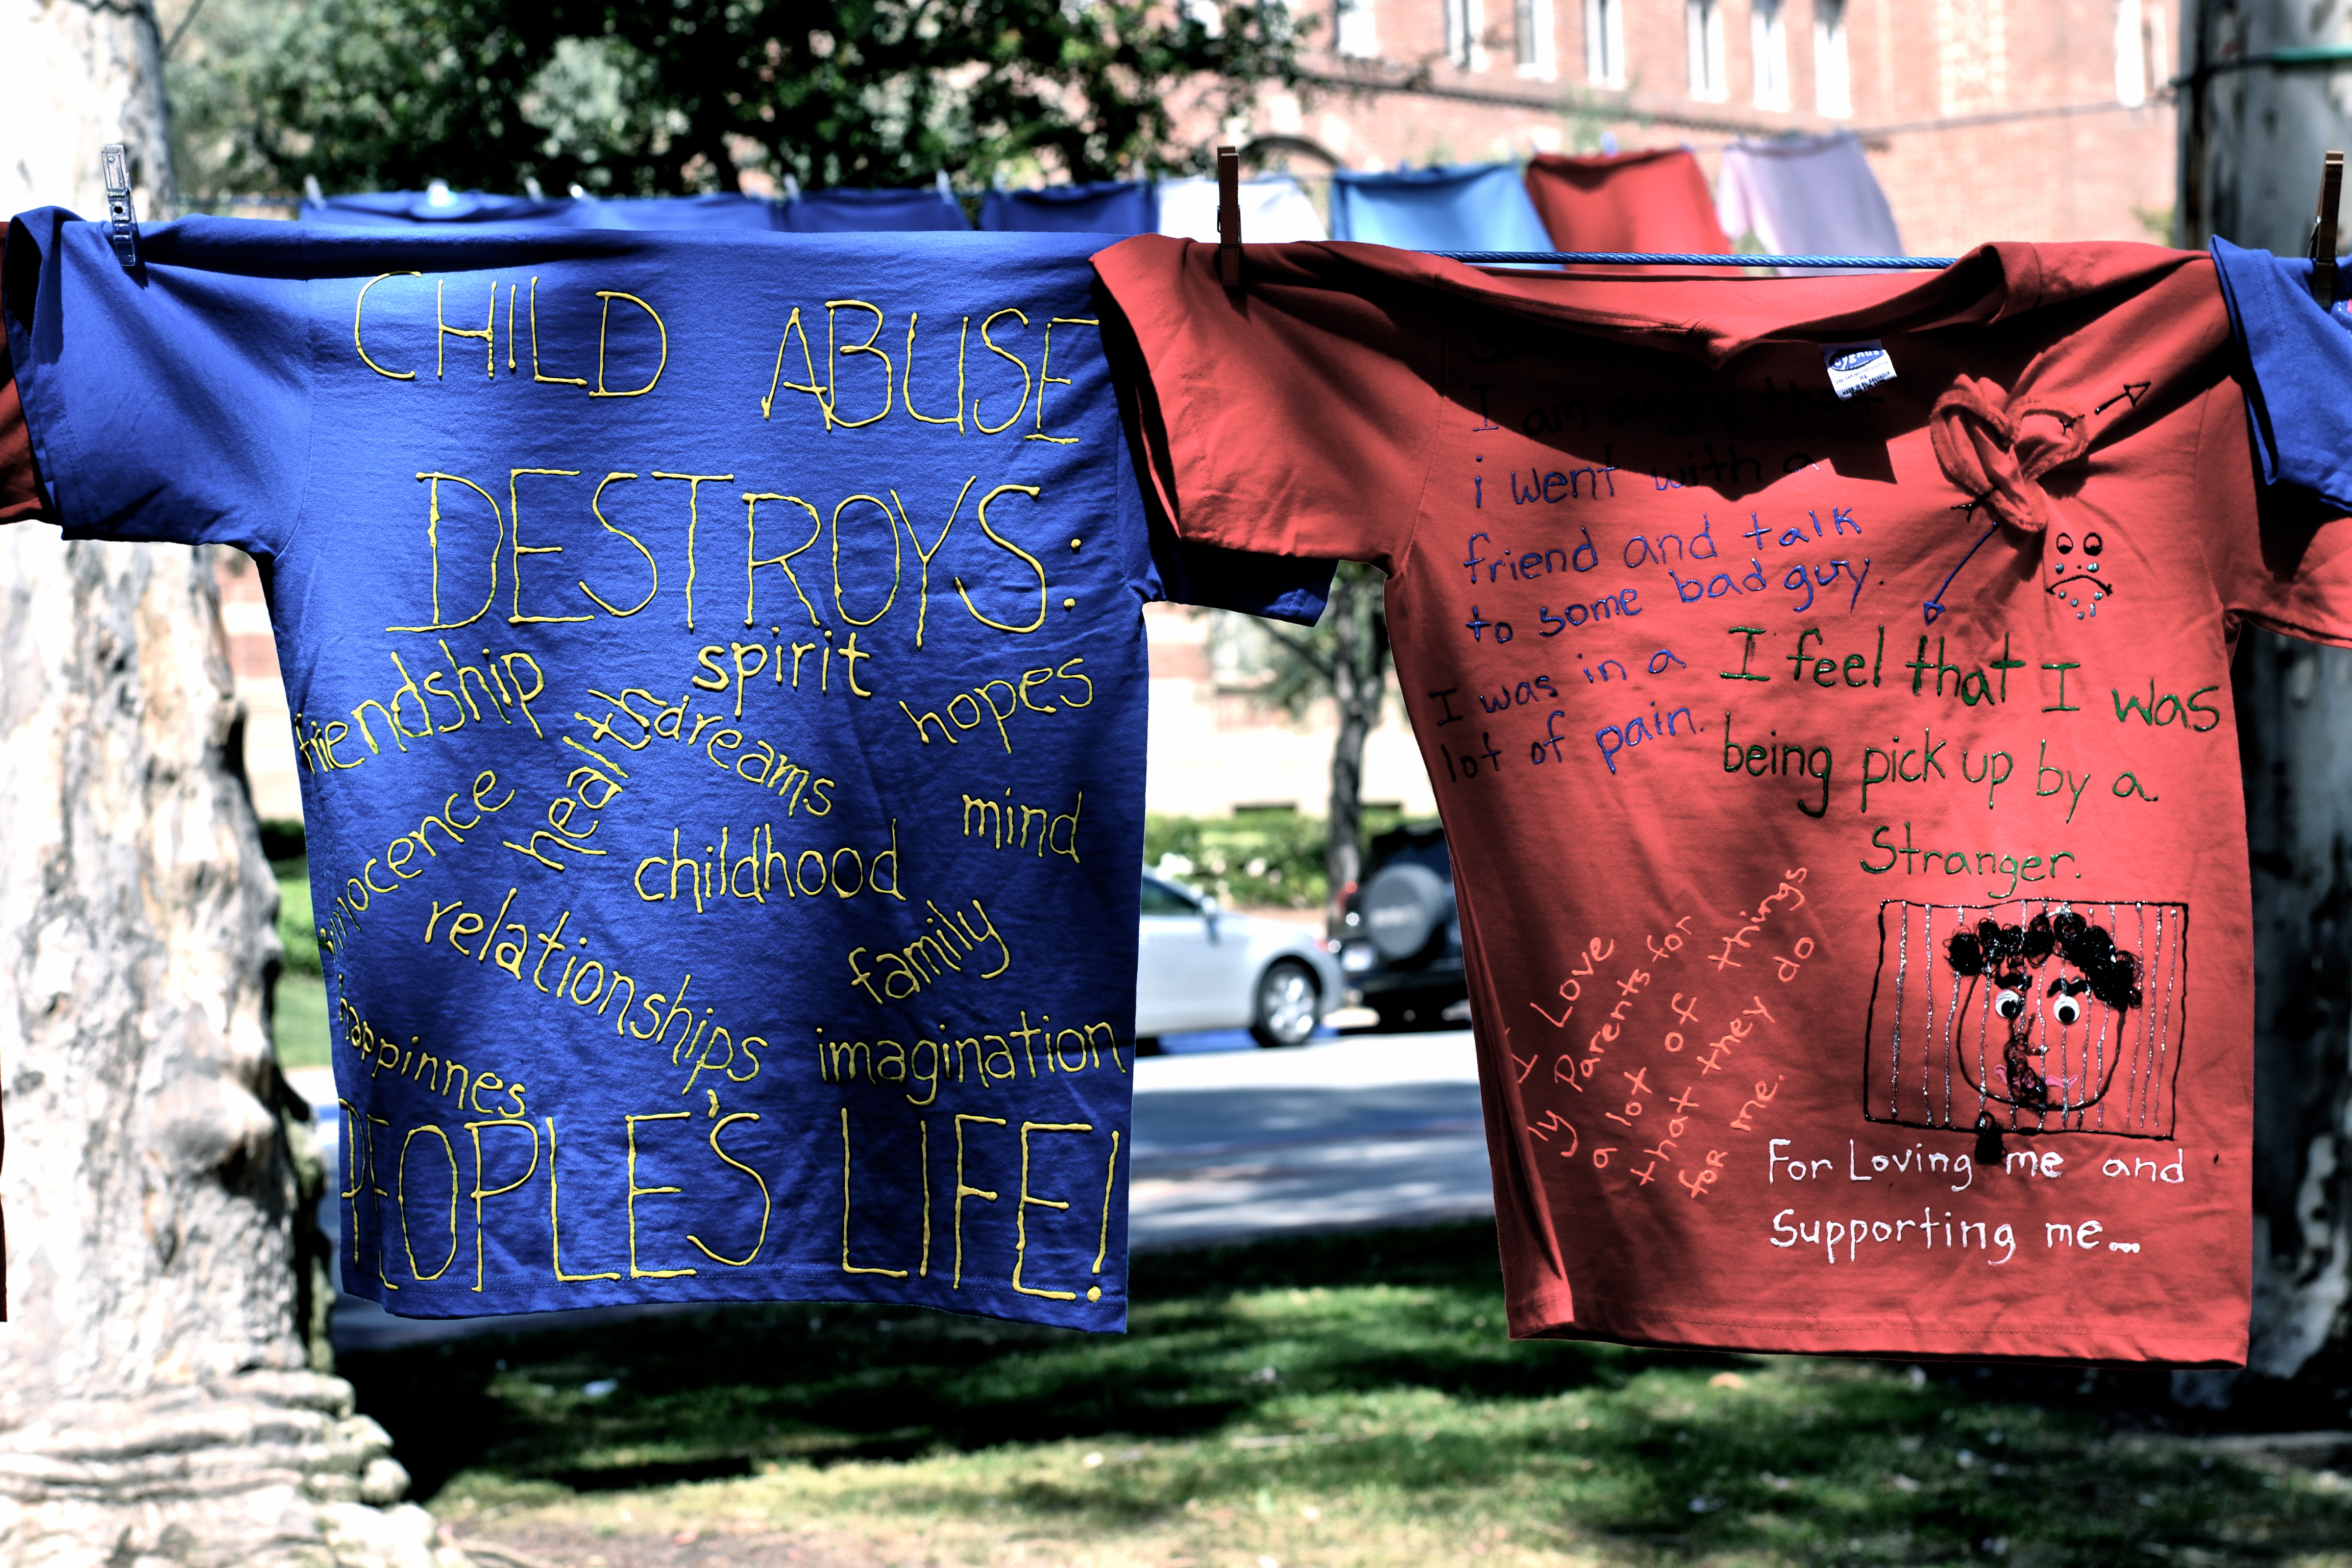 CHILD ABUSE
DESTROYS:
friendship
spirit
health
dreams
hopes
innocence
childhood
mind
relationships
family
happinnes
imagination
PEOPLE'S LIFE!
I am angry that
i went with a
friend and talk
to some bad guy.
I was in a
lot of pain.
I feel that I was
being pick up by a
Stranger.
I Love
y Parents for
a lot of things
that they do
for me.
For Loving me and
Supporting me...